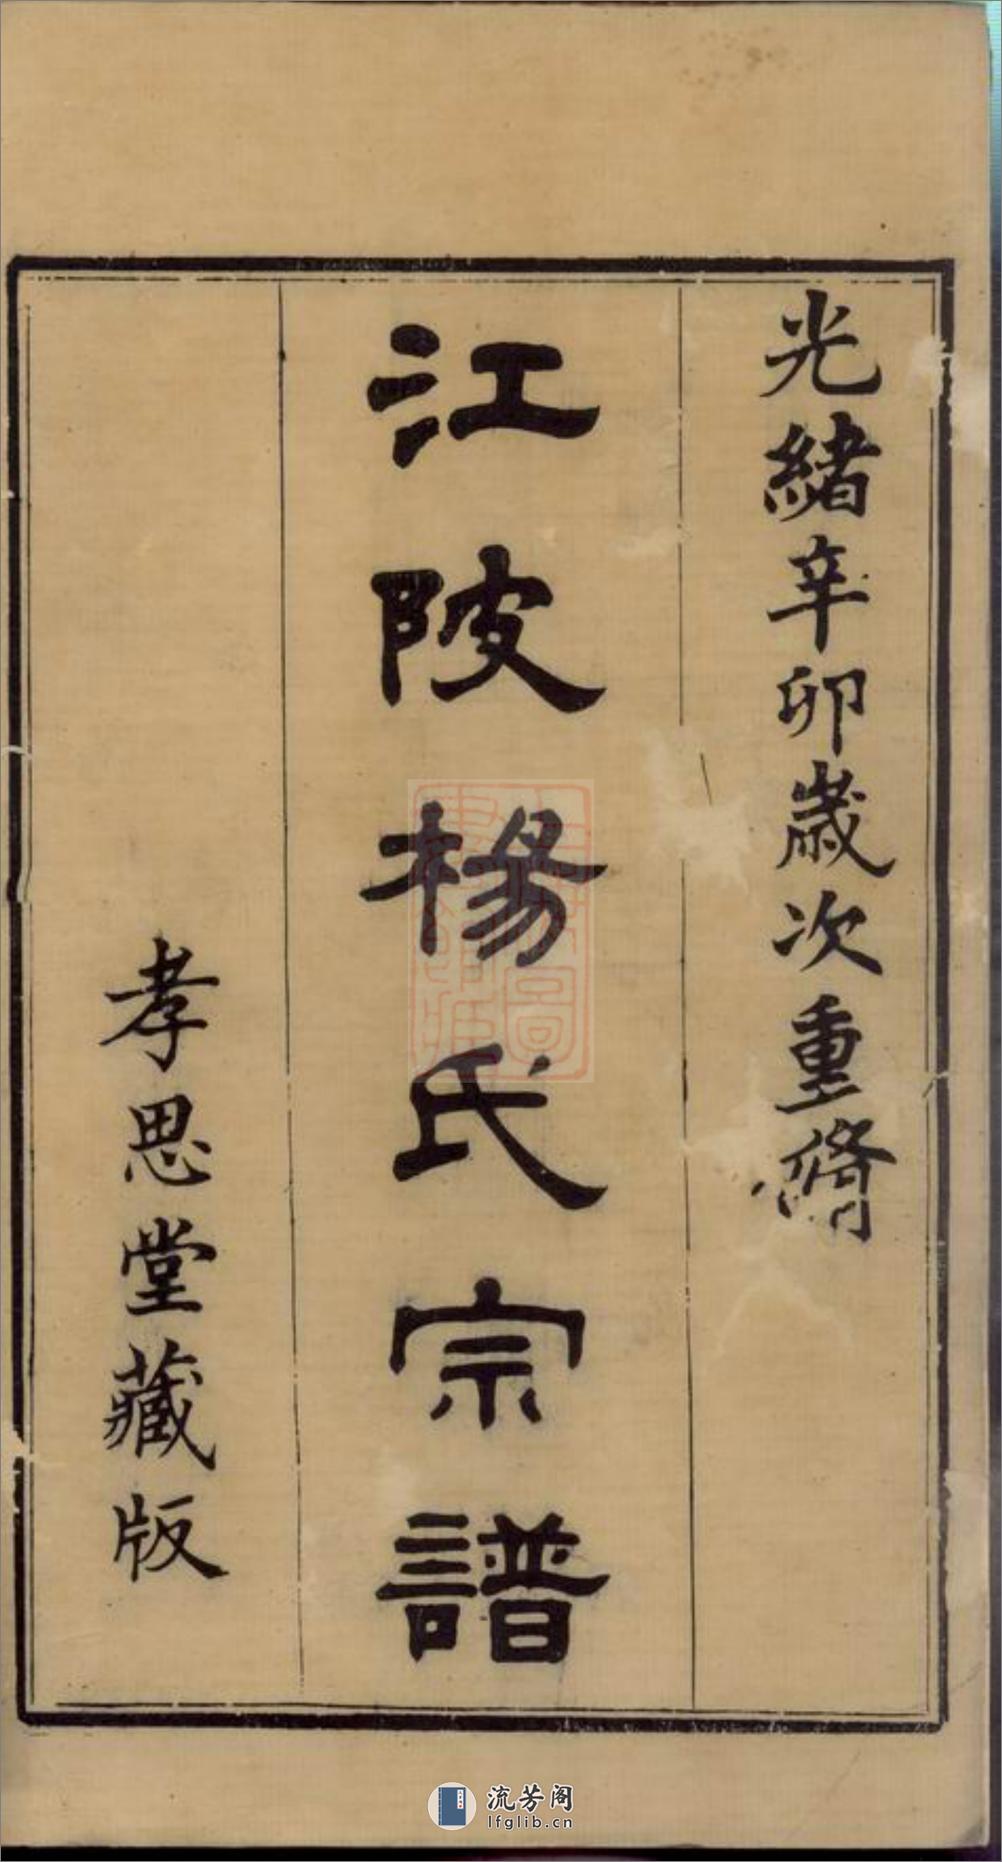 光緒辛卯歲次重脩
江陂楊氏宗譜
孝思堂藏版
流芳阁
lfglib.cn